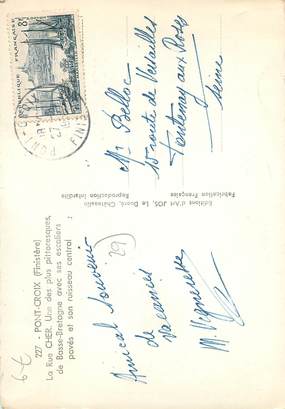 227 - PONT-CROIX (Finistère)
La Rue CHER. Une des plus pittoresques,
de Basse-Bretagne avec ses escaliers
pavés et son ruisseau central
Amical souvenir
de
vacances
(29)
6 €
Editions d'Art JOS, Le Doaré, Châteaulin
Fabrication Française - Reproduction Interdite
REPUBLIQUE FRANÇAISE
8F
PONT-CROIX
FINIS
Mr Belloc
route de Versailles
Fontenay aux Roses
Seine